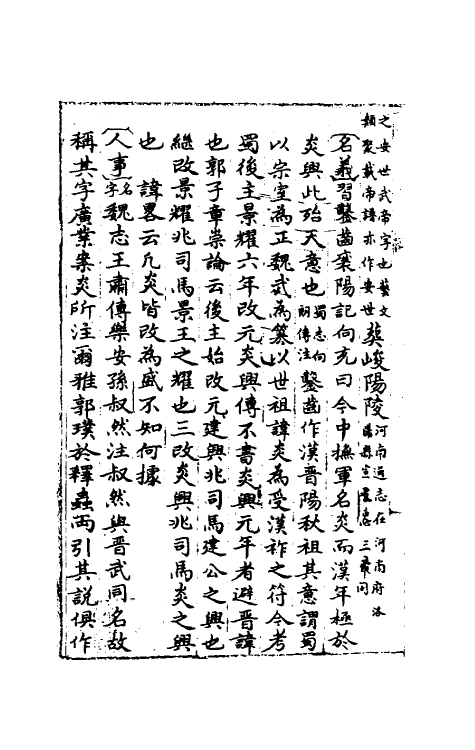 之安世武帝字也藝文
類聚載帝諱亦作安世葬峻陽陵河南通志在河南府洛
名義習鑿齒襄陽記向充曰今中撫軍名炎而漢年極於
炎興此殆天意也蜀志向朗傳注鑿齒作漢晉陽秋祖其意謂蜀
以宗室為正魏武為篡以世祖諱炎為受漢祚之符今考
蜀後主景耀六年改元炎興傳不書炎興元年者避晉諱
也郭子章崇論云後主始改元建興兆司馬建公之興也
繼改景耀兆司馬景王之耀也三改炎興兆司馬炎之興
也 諱畧云凡炎皆改為盛不知何據
人事名字魏志王肅傳樂安孫叔然注叔然與晉武同名故
稱其字廣業案炎所注爾雅郭璞於釋蟲两引其說俱作